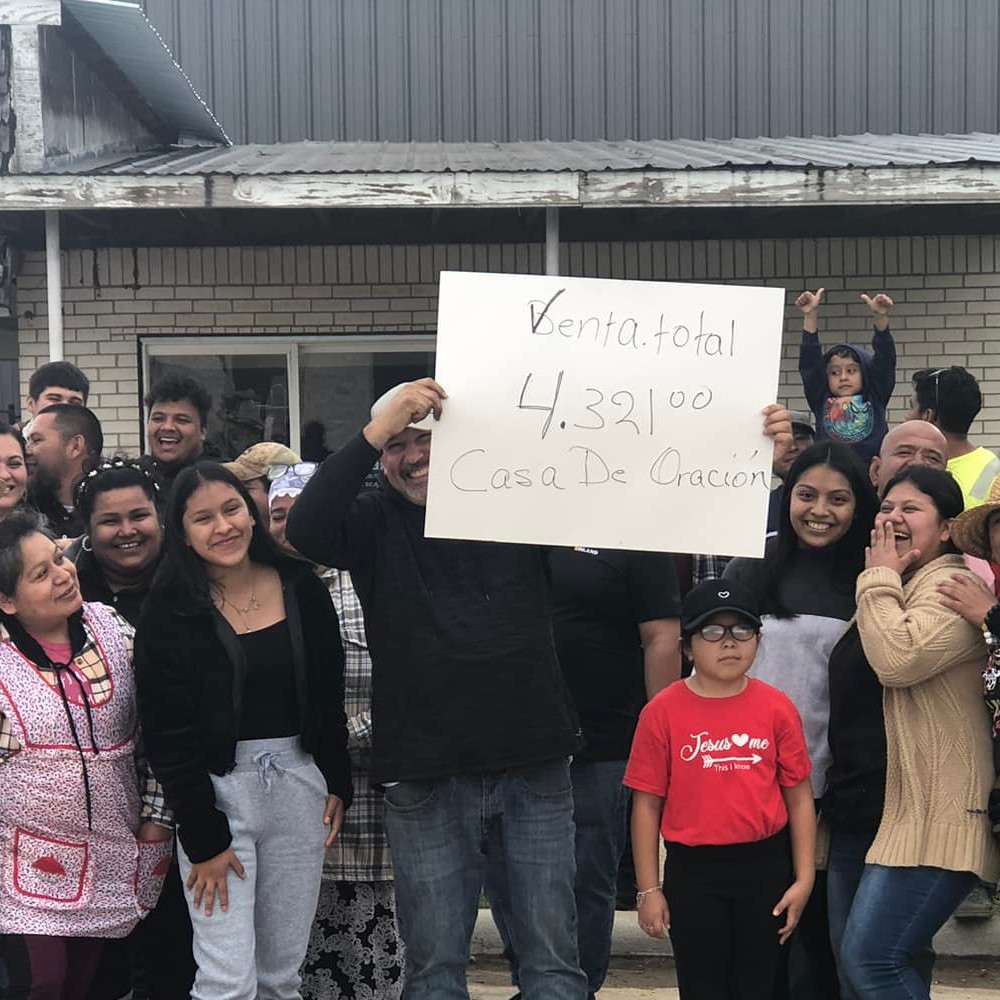 Venta.total
4.321⁰⁰
Casa De Oración
Jesus ♥ me
This I know